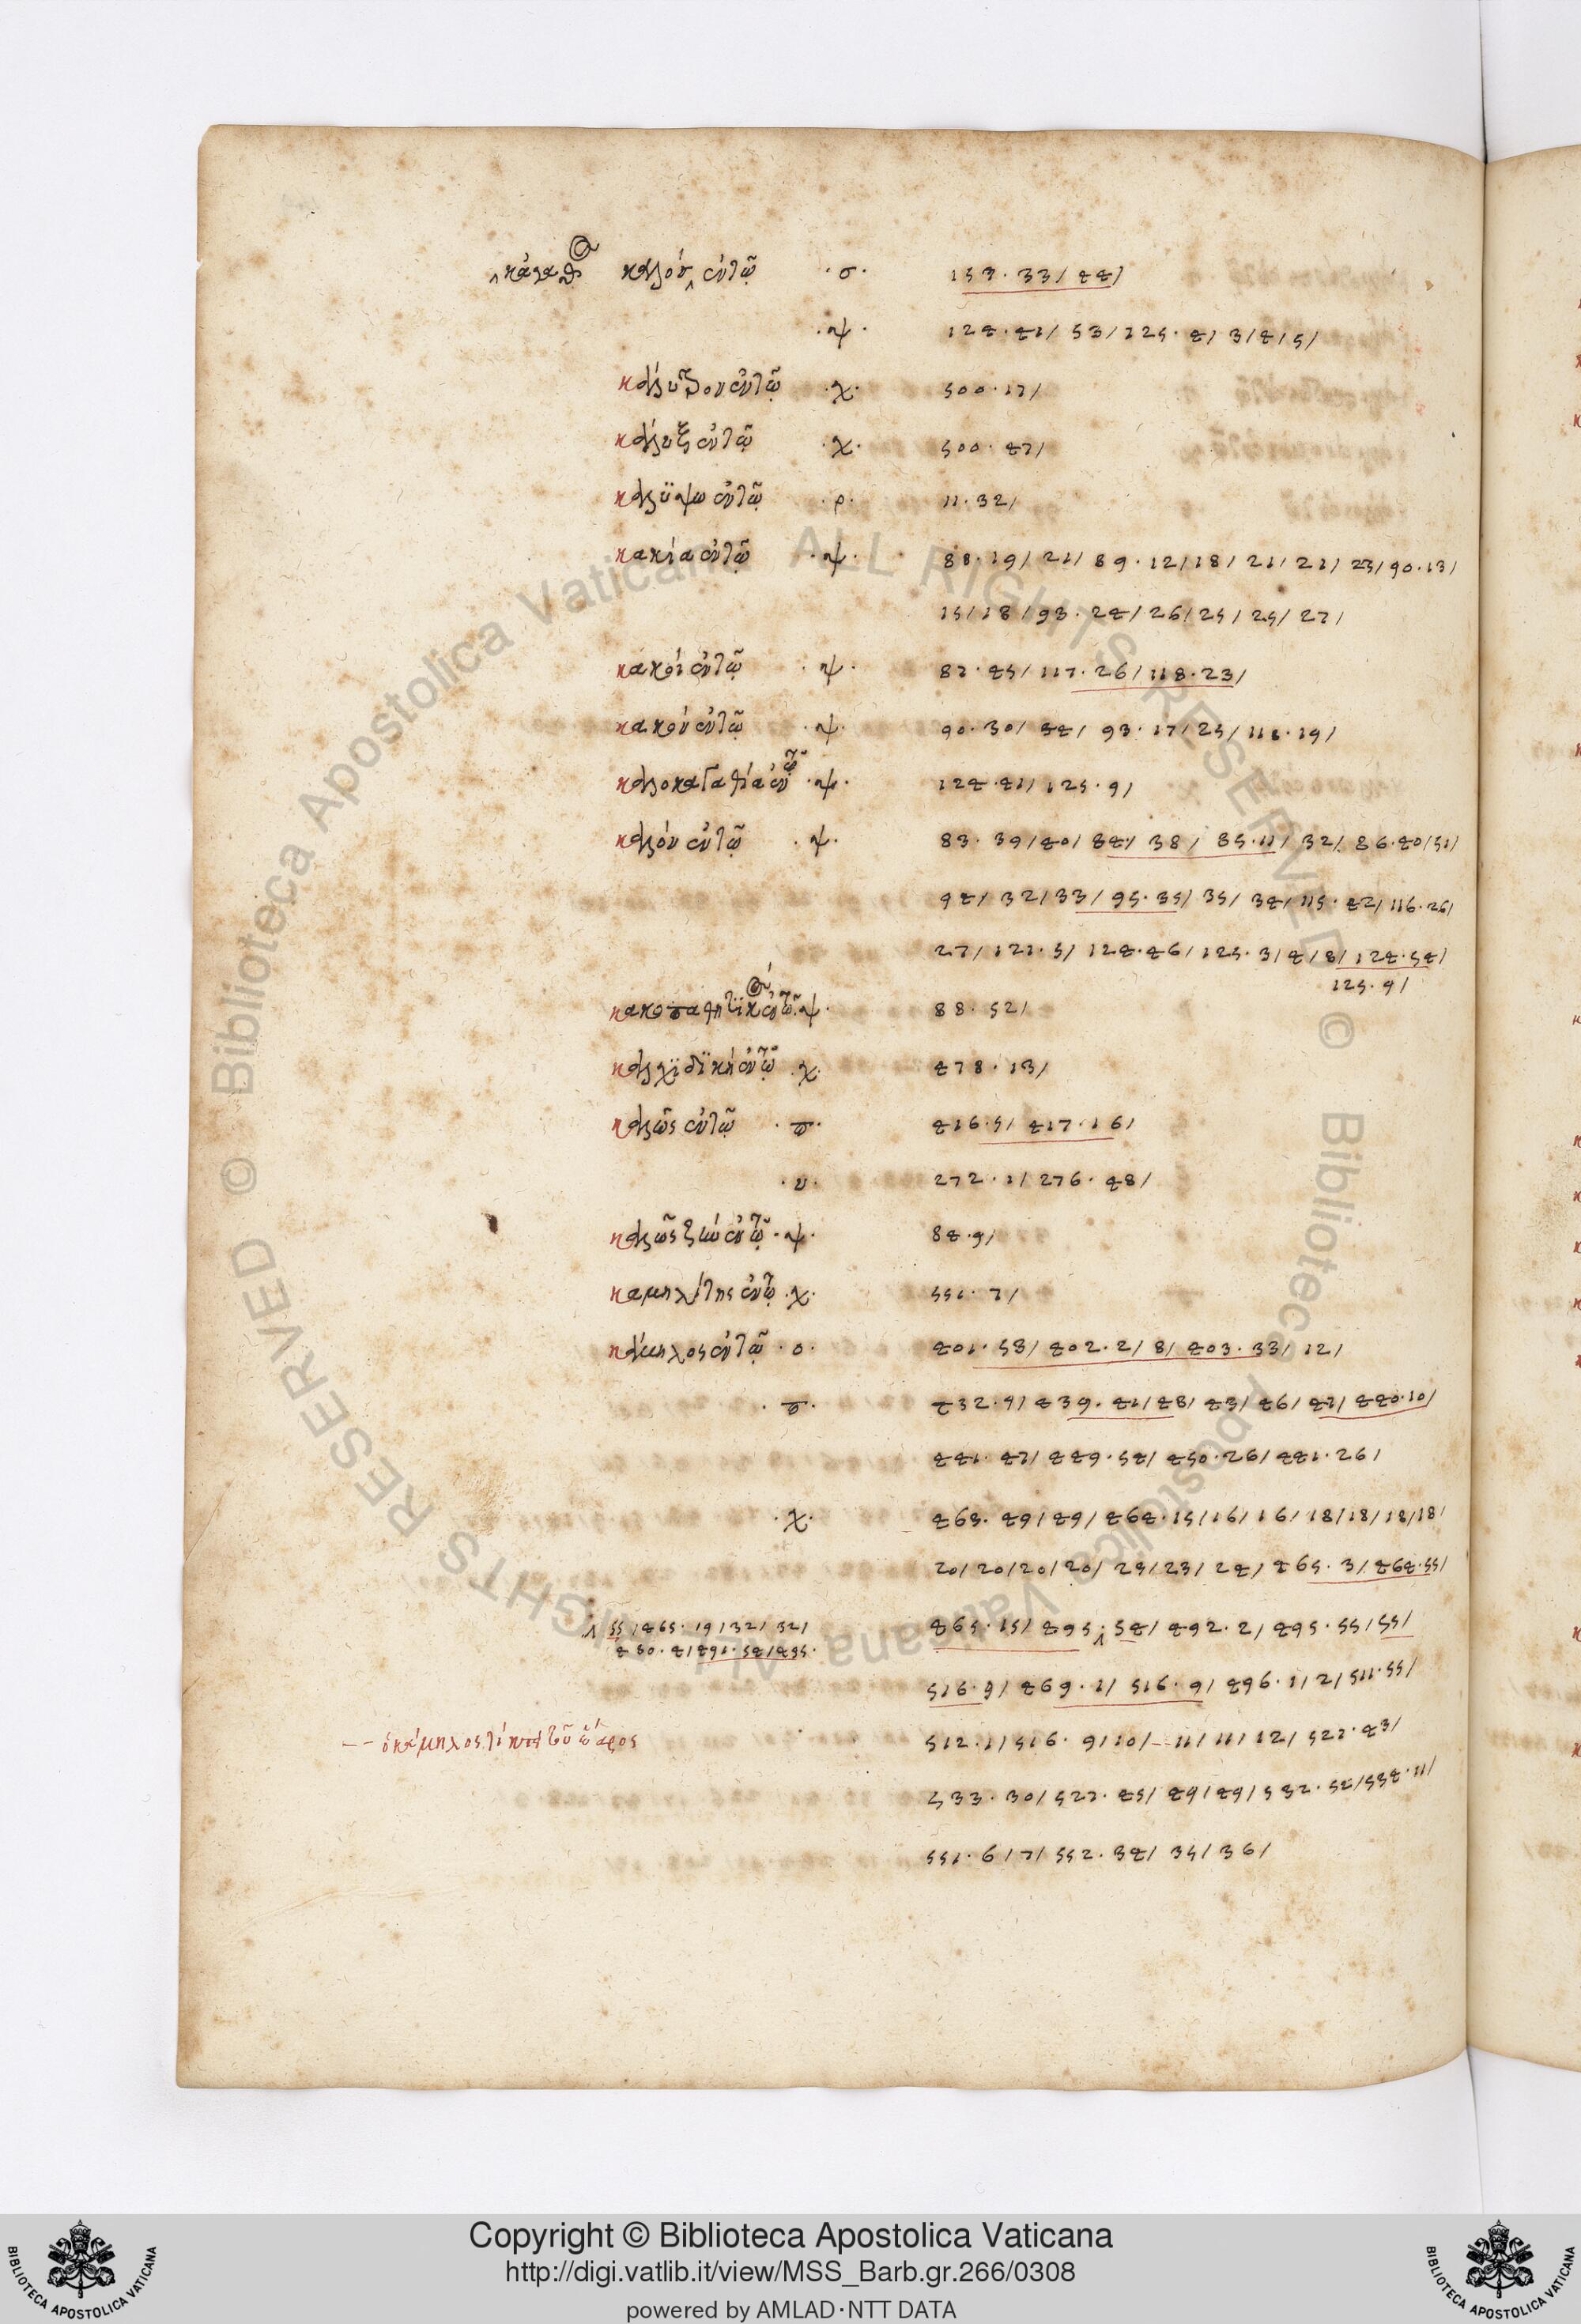 καλὸν ἐν τῷ · σ · 157 · 33 / 44 /
· ψ · 124 · 41 / 53 / 125 · 4 / 3 / 4 / 5 /
ἐν τῷ · χ · 500 · 17 /
κάλυξ ἐν τῷ · χ · 500 · 47 /
καλυψω ἐν τῷ · ρ · 11 · 32 /
κακία ἐν τῷ · ψ · 88 · 19 / 21 / 89 · 12 / 18 / 21 / 21 / 23 / 90 · 13 /
15 / 18 / 93 · 24 / 26 / 25 / 25 / 27 /
κακοὶ ἐν τῷ · ψ · 87 · 45 / 117 · 26 / 118 · 23 /
κακὸν ἐν τῷ · ψ · 90 · 30 / 34 / 93 · 17 / 25 / 118 · 19 /
καλοκαγαθία ἐν τῷ · ψ · 124 · 41 / 125 · 9 /
καλὸν ἐν τῷ · ψ · 83 · 39 / 40 / 84 / 38 / 85 · 11 / 32 / 86 · 40 / 51 /
94 / 32 / 33 / 95 · 35 / 35 / 34 / 115 · 42 / 116 · 26 /
27 / 121 · 5 / 124 · 46 / 125 · 3 / 4 / 8 / 124 · 54 /
125 · 9 /
ἐν τῷ · ψ · 88 · 52 /
καλχιδικὴ ἐν τῷ · χ · 478 · 13 /
καλῶς ἐν τῷ · π · 416 · 5 / 417 · 16 /
· υ · 272 · 1 / 276 · 48 /
καλῶς ζῆν ἐν τῷ · ψ · 84 · 9 /
καμηλίτης ἐν τῷ · χ · 551 · 7 /
κάμηλος ἐν τῷ · ο · 401 · 53 / 402 · 2 / 8 / 403 · 33 / 12 /
· π · 432 · 9 / 439 · 41 / 48 / 43 / 46 / 47 / 440 · 10 /
441 · 47 / 449 · 54 / 450 · 26 / 441 · 26 /
· χ · 463 · 49 / 49 / 464 · 15 / 16 / 16 / 18 / 18 / 18 / 18 /
20 / 20 / 20 / 20 / 23 / 23 / 24 / 465 · 3 / 464 · 55 /
55 / 465 · 19 / 32 / 32 /
480 · 4 / 491 · 54 / 495 ·
465 · 15 / 495 · 54 / 492 · 2 / 495 · 55 / 55 /
516 · 9 / 469 · 1 / 516 · 9 / 496 · 1 / 2 / 511 · 55 /
-- ὁ κάμηλος τί ποτ
512 · 1 / 516 · 9 / 10 / -- 11 / 11 / 12 / 527 · 43 /
533 · 30 / 527 · 45 / 49 / 49 / 532 · 54 / 534 · 11 /
551 · 6 / 7 / 552 · 34 / 35 / 36 /
© Biblioteca Apostolica Vaticana ALL RIGHTS RESERVED © Biblioteca Apostolica Vaticana ALL RIGHTS RESERVED
Copyright © Biblioteca Apostolica Vaticana
http://digi.vatlib.it/view/MSS_Barb.gr.266/0308
powered by AMLAD·NTT DATA
BIBLIOTECA APOSTOLICA VATICANA
BIBLIOTECA APOSTOLICA VATICANA